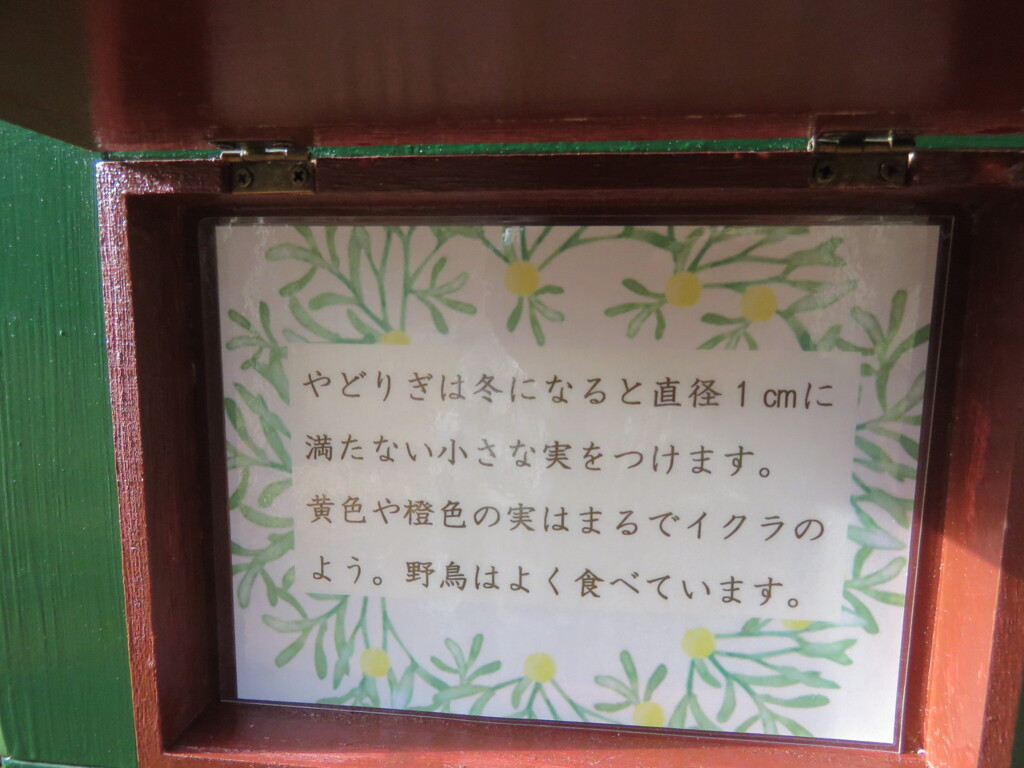 やどりぎは冬になると直径1cmに
満たない小さな実をつけます。
黄色や橙色の実はまるでイクラの
よう。野鳥はよく食べています。